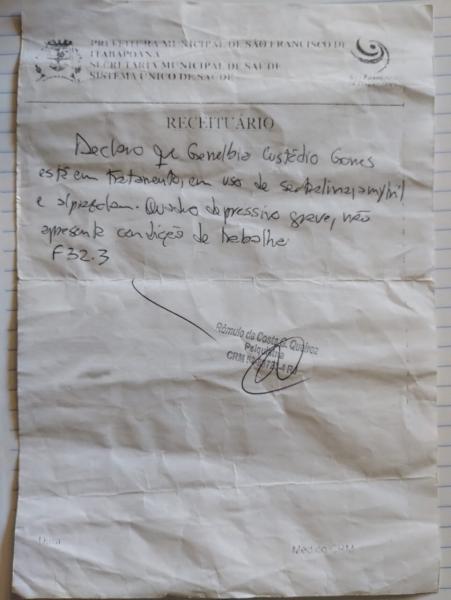 PREFEITURA MUNICIPAL DE SÃO FRANCISCO DE
ITABAPOANA
SECRETARIA MUNICIPAL DE SAÚDE
SISTEMA ÚNICO DE SAÚDE
RECEITUÁRIO
Declaro que Custódio Gomes
está em tratamento, em uso de sertralina, amytril
e alprazolam. Quadro depressivo grave, não
apresenta condição de trabalho.
F32.3
Rômulo da Costa Queiroz
Psiquiatria
CRM
Data
Médico CRM